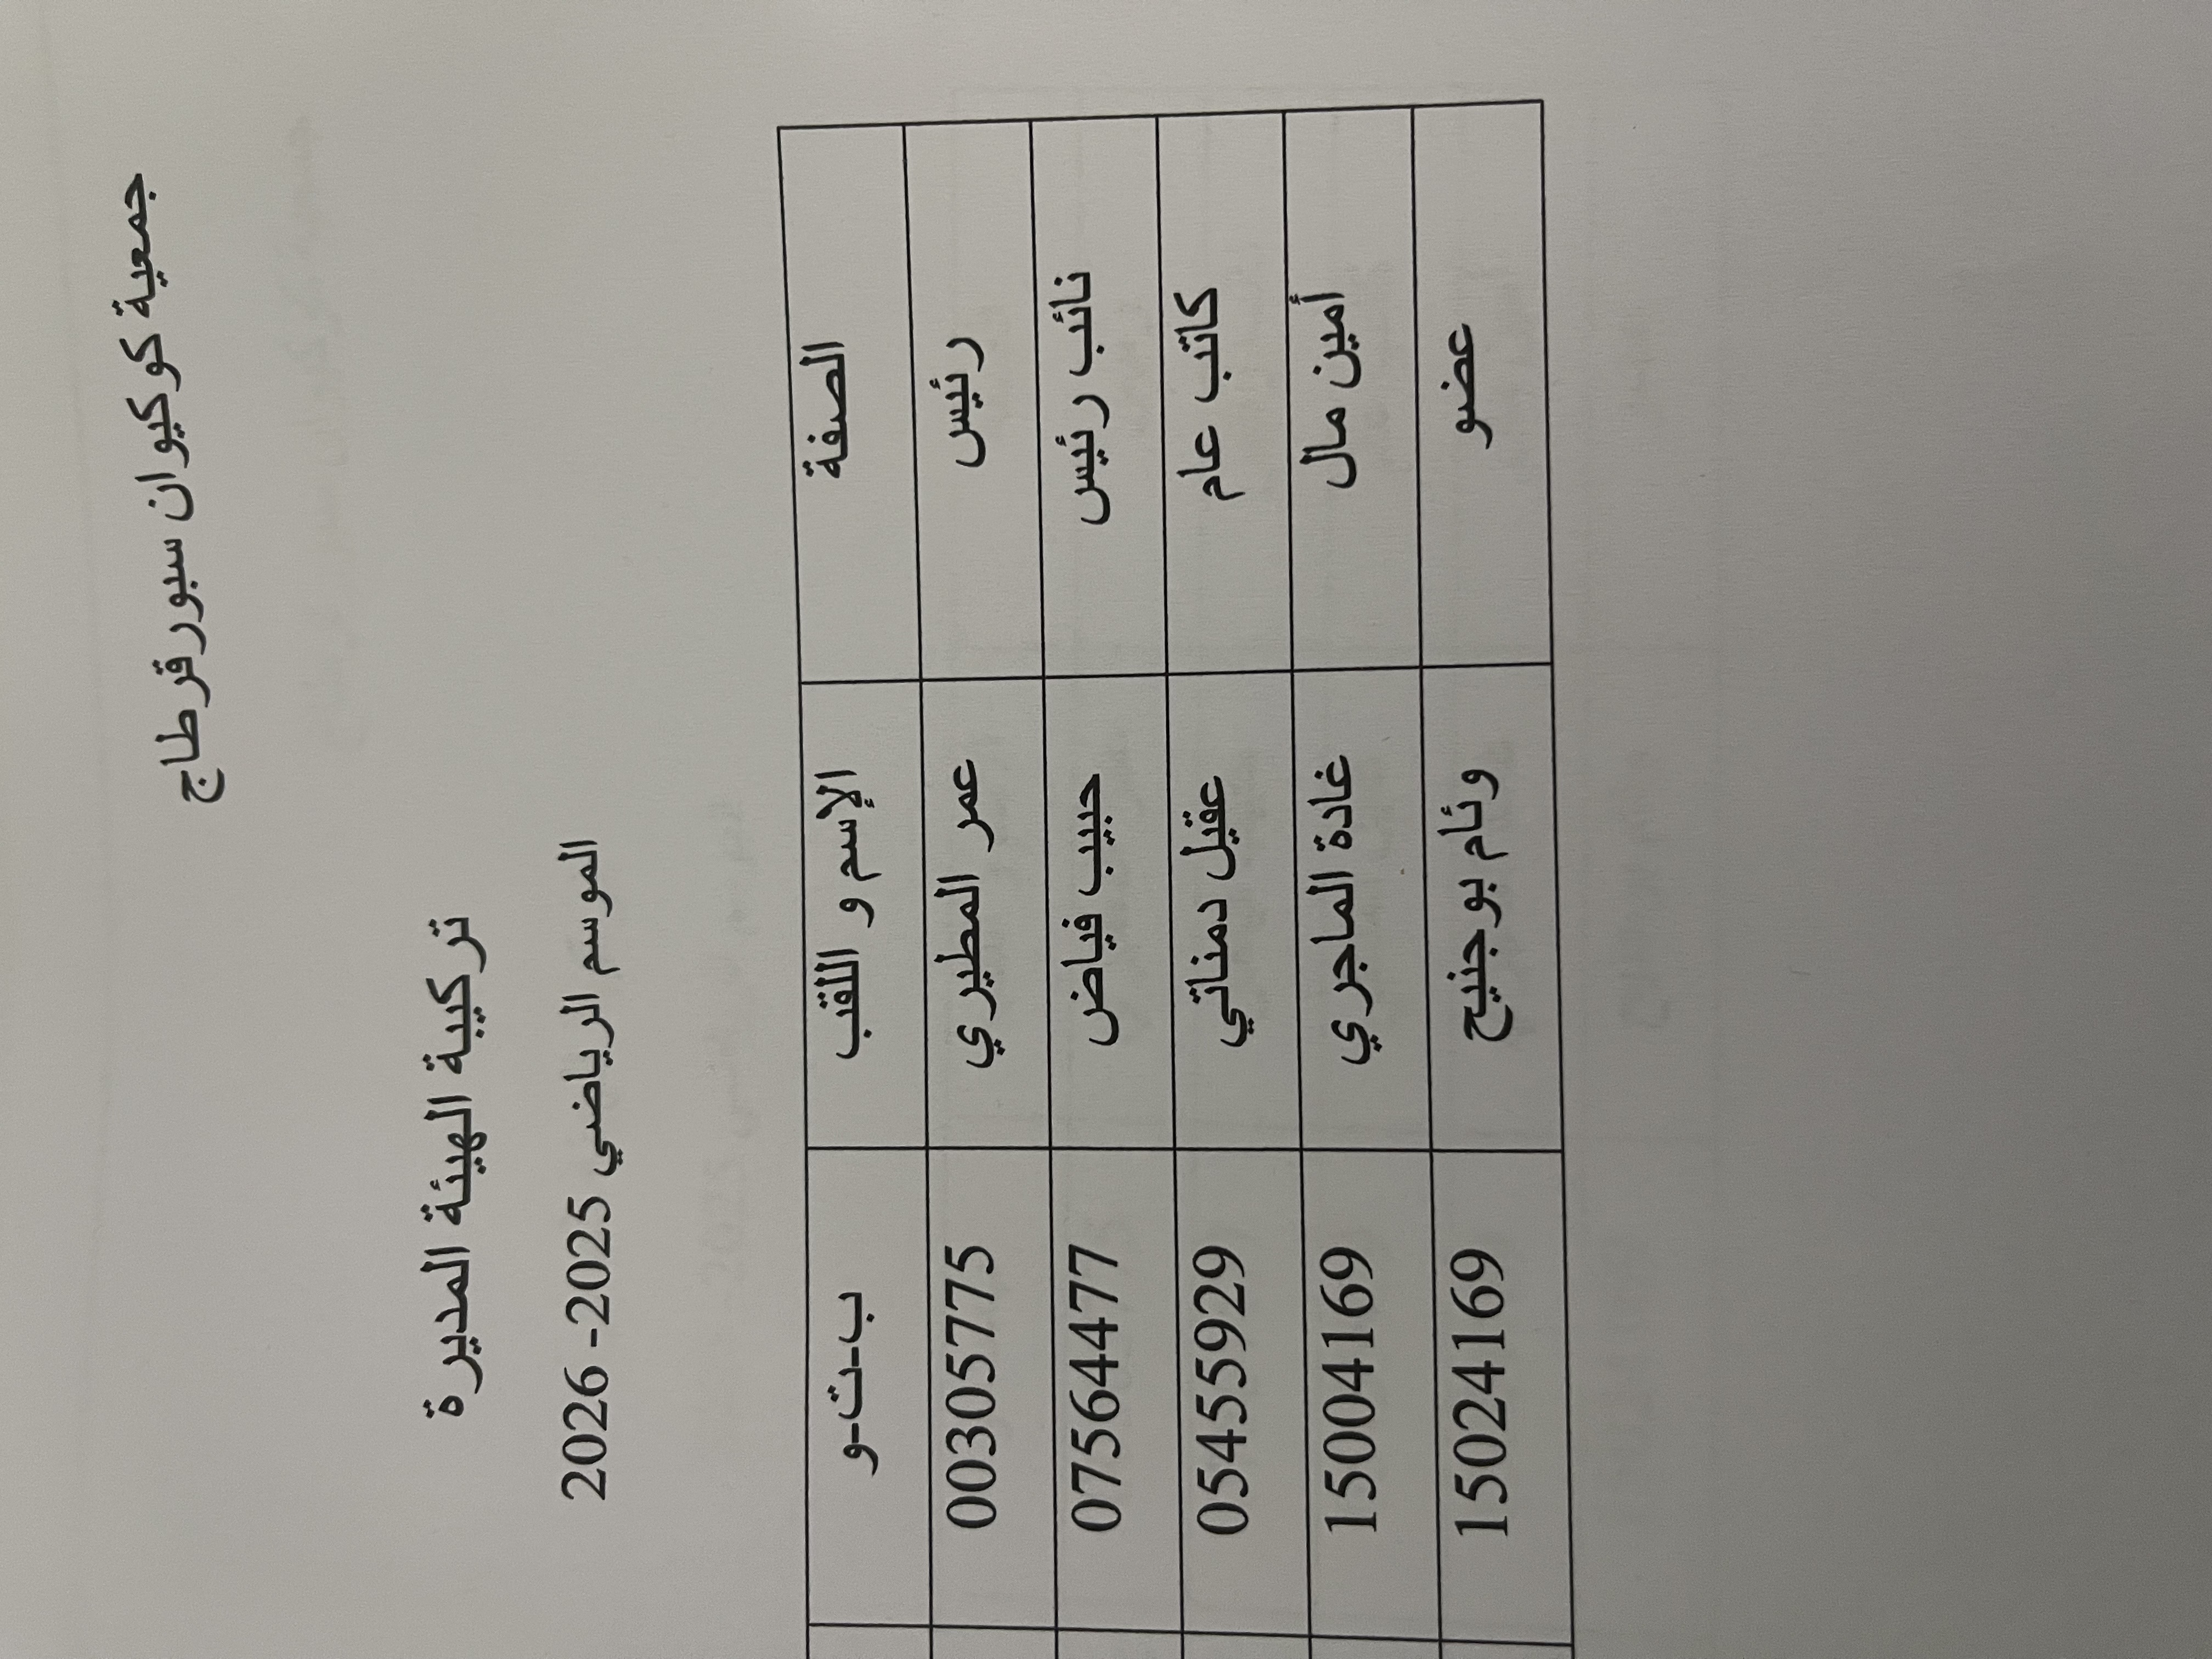 جمعية كوكيوان سبور قرطاج
تركيبة الهيئة المديرة
الموسم الرياضي 2025- 2026
الصفة الإسم و اللقب ب-ت-و
رئيس عمر المطيري 00305775
نائب رئيس حبيب فياض 07564477
كاتب عام عقيل دمناتي 05455929
أمين مال غادة الماجري 15004169
عضو وئام بوجنيح 15024169